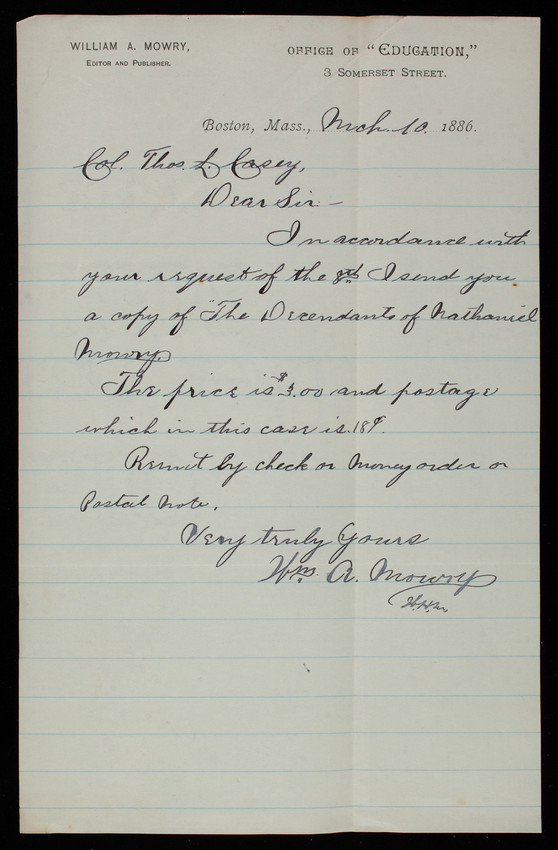 WILLIAM A. MOWRY,
EDITOR AND PUBLISHER.
OFFICE OF "EDUCATION,"
3 SOMERSET STREET.
Boston, Mass., Mch. 10. 1886.
Col. Thos. L. Casey,
Dear Sir:-
In accordance with
your request of the 8th. I send you
a copy of "The Decendants of Nathaniel
Mowry."
The price is $3.00 and postage
which in this case is .18¢.
Remit by check or Money order or
Postal Note.
Very truly Yours
Wm. A. Mowry